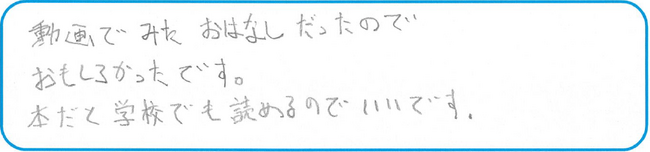 動画でみたおはなしだったので
おもしろかったです。
本だと学校でも読めるのでいいです.